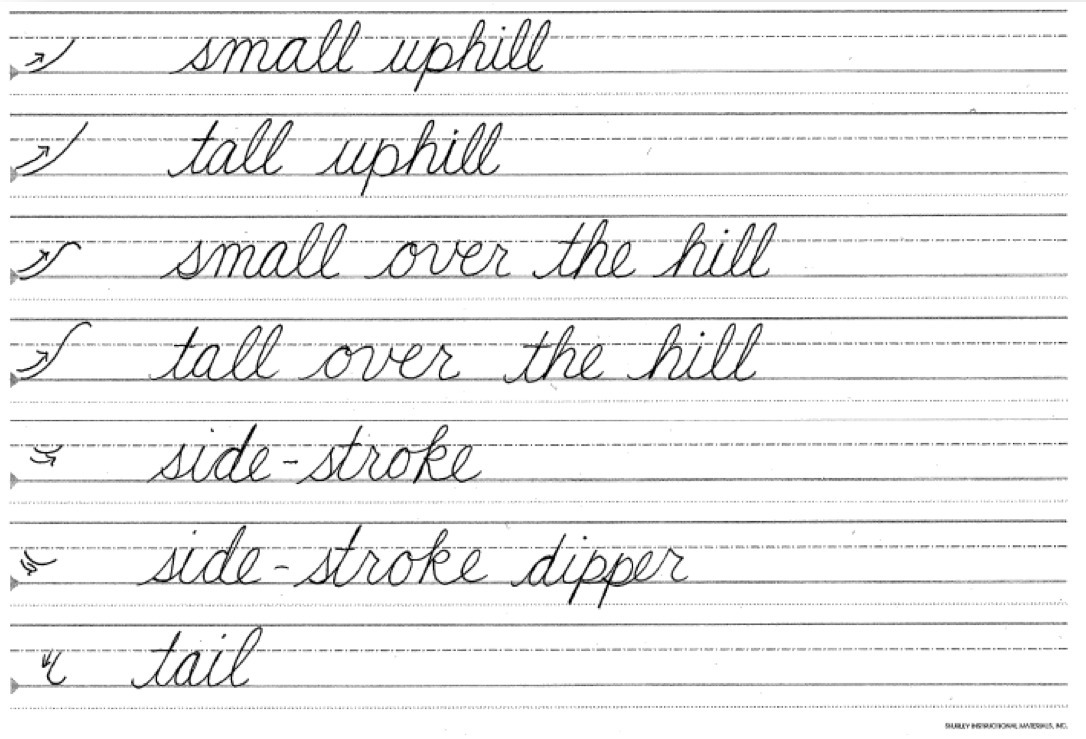 small uphill
tall uphill
small over the hill
tall over the hill
side-stroke
side-stroke dipper
tail
SHURLEY INSTRUCTIONAL MATERIALS, INC.